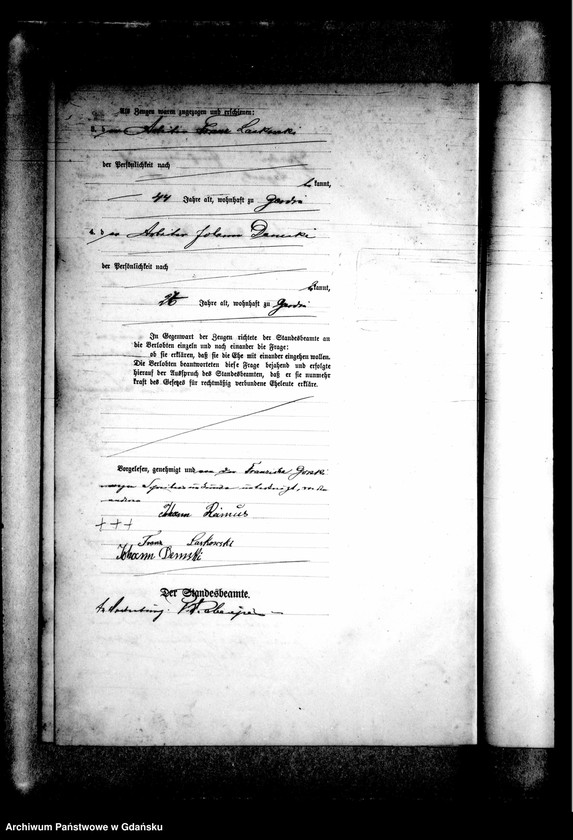 Als Zeugen waren zugezogen und erschienen:
3. der Arbeiter Franz Laskowski
der Persönlichkeit nach
kannt,
44 Jahre alt, wohnhaft zu
4. der Arbeiter Johann Demski
der Persönlichkeit nach
kannt,
26 Jahre alt, wohnhaft zu
In Gegenwart der Zeugen richtete der Standesbeamte an
die Verlobten einzeln und nach einander die Frage:
ob sie erklären, daß sie die Ehe mit einander eingehen wollen.
Die Verlobten beantworteten diese Frage bejahend und erfolgte
hierauf der Ausspruch des Standesbeamten, daß er sie nunmehr
kraft des Gesetzes für rechtmäßig verbundene Eheleute erkläre.
Vorgelesen, genehmigt und von der Franziska Gorski
wegen
Johann Raimus
+++
Franz Laskowski
Johann Demski
Der Standesbeamte.
Archiwum Państwowe w Gdańsku